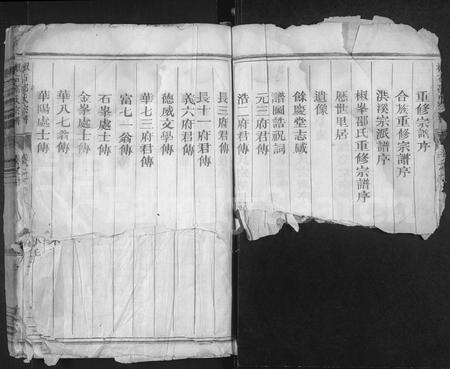 重修宗譜序
合族重修宗譜序
洪溪宗派譜序
椒峯邵氏重修宗譜序
歷世里居
遺像
餘慶堂志誠
譜圖誥祝詞
元二府君傳
浩二府君傳
長三府君傳
長十一府君傳
義六府君傳
德威文學傳
華七三府君傳
富七一翁傳
石峯處士傳
金峯處士傳
華八七翁傳
華陽處士傳